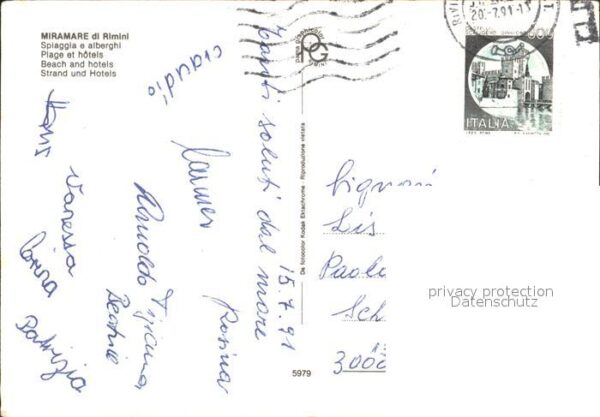 MIRAMARE di Rimini
Spiaggia e alberghi
Plage et hôtels
Beach and hotels
Strand und Hotels
15.7.91
Tanti saluti dal mare
Claudio
Carmen
Rosina
Arnoldo Tiziana
Beatrice
Vanessa
Patrizia
De fotocolor Kodak Ektachrome - Riproduzione vietata
5979
20.7.91-1
500
ITALIA
Signori
Lis
Paol
Sch
300
privacy protection
Datenschutz